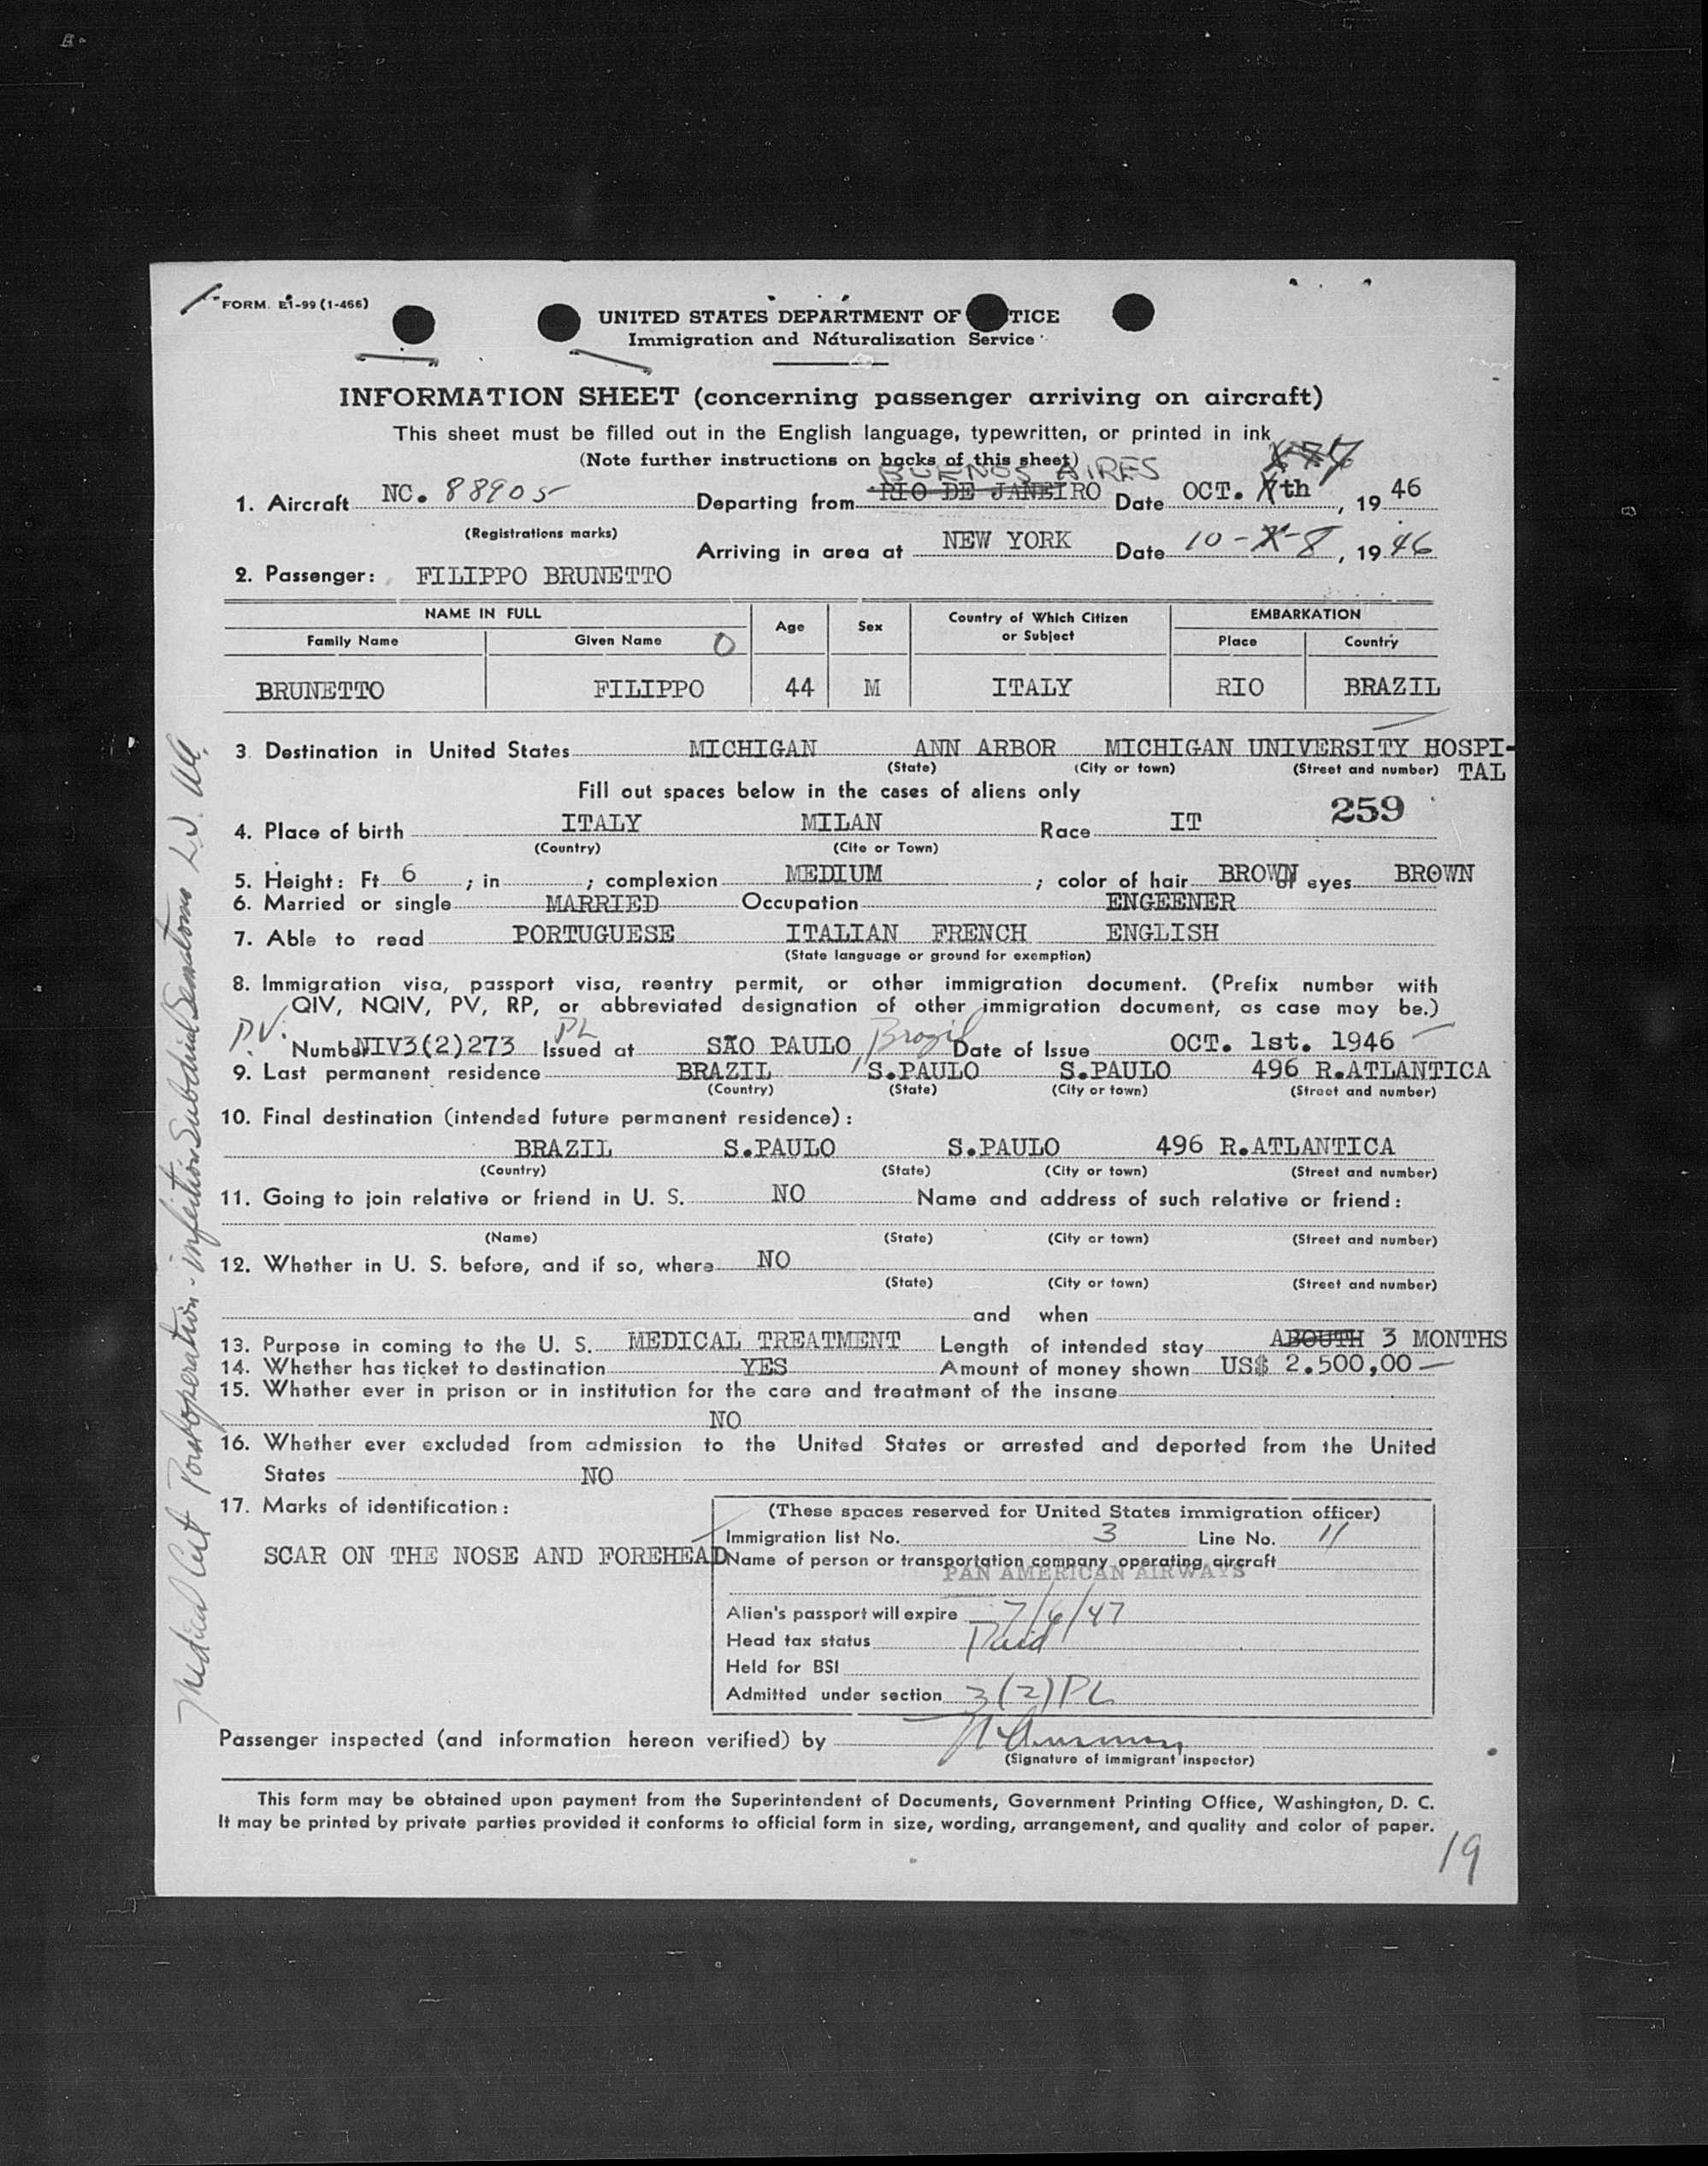 FORM. EI-99 (1-466)
UNITED STATES DEPARTMENT OF TICE
Immigration and Naturalization Service
INFORMATION SHEET (concerning passenger arriving on aircraft)
This sheet must be filled out in the English language, typewritten, or printed in ink
(Note further instructions on backs of this sheet)
BUENOS AIRES
7
1. Aircraft NC. 88905 Departing from RIO DE JANEIRO Date OCT. 7th, 19 46
(Registrations marks)
Arriving in area at NEW YORK Date 10-X-8, 19 46
2. Passenger: FILIPPO BRUNETTO
NAME IN FULL Age Sex Country of Which Citizen or Subject EMBARKATION
Family Name Given Name O Place Country
BRUNETTO FILIPPO 44 M ITALY RIO BRAZIL
3. Destination in United States MICHIGAN ANN ARBOR MICHIGAN UNIVERSITY HOSPI-
(State) (City or town) (Street and number) TAL
Fill out spaces below in the cases of aliens only
259
4. Place of birth ITALY MILAN Race IT
(Country) (Cite or Town)
5. Height: Ft 6 ; in ; complexion MEDIUM ; color of hair BROWN of eyes BROWN
6. Married or single MARRIED Occupation ENGEENER
7. Able to read PORTUGUESE ITALIAN FRENCH ENGLISH
(State language or ground for exemption)
8. Immigration visa, passport visa, reentry permit, or other immigration document. (Prefix number with
QIV, NQIV, PV, RP, or abbreviated designation of other immigration document, as case may be.)
P.V. PL
Number NIV3(2)273 Issued at SÃO PAULO, Brazil Date of Issue OCT. 1st. 1946
9. Last permanent residence BRAZIL S.PAULO S.PAULO 496 R.ATLANTICA
(Country) (State) (City or town) (Street and number)
10. Final destination (intended future permanent residence):
BRAZIL S.PAULO S.PAULO 496 R.ATLANTICA
(Country) (State) (City or town) (Street and number)
11. Going to join relative or friend in U. S. NO Name and address of such relative or friend:
(Name) (State) (City or town) (Street and number)
12. Whether in U. S. before, and if so, where NO
(State) (City or town) (Street and number)
and when
13. Purpose in coming to the U. S. MEDICAL TREATMENT Length of intended stay ABOUTH 3 MONTHS
14. Whether has ticket to destination YES Amount of money shown US$ 2.500,00
15. Whether ever in prison or in institution for the care and treatment of the insane
NO
16. Whether ever excluded from admission to the United States or arrested and deported from the United
States NO
17. Marks of identification:
SCAR ON THE NOSE AND FOREHEAD
(These spaces reserved for United States immigration officer)
Immigration list No. 3 Line No. 11
Name of person or transportation company operating aircraft
PAN AMERICAN AIRWAYS
Alien's passport will expire 7/6/47
Head tax status Paid
Held for BSI
Admitted under section 3(2)PL
Passenger inspected (and information hereon verified) by
(Signature of immigrant inspector)
This form may be obtained upon payment from the Superintendent of Documents, Government Printing Office, Washington, D. C.
It may be printed by private parties provided it conforms to official form in size, wording, arrangement, and quality and color of paper.
19
Medical Cert Postoperation - infection Subdural